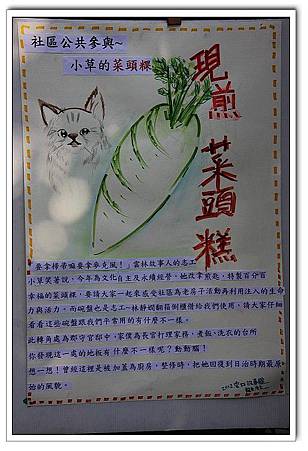 社區公共參與~
小草的菜頭粿
現煎菜頭糕
「要拿掃帚嘛要拿麥克風!」雲林故事人的志工
小草笑著說,今年為文化自主及永續經營,她改拿煎匙,特製百分百
幸福的菜頭粿,要請大家一起來感受社區為老房子活動再利用注入的生命
力與活力。而碗盤也是志工~林靜嫻翻箱倒櫃借給我們使用,請大家仔細
看看這些碗盤跟我們平常用的有什麼不一樣。
此轉角處為郡守官邸中,家僕為長官打理家務,煮飯、洗衣的台所
你發現這一處的地板有什麼不一樣呢?動動腦!
想一想!曾經這裡是被加蓋為廚房,整修時,把她回復到日治時期最原
始的風貌。